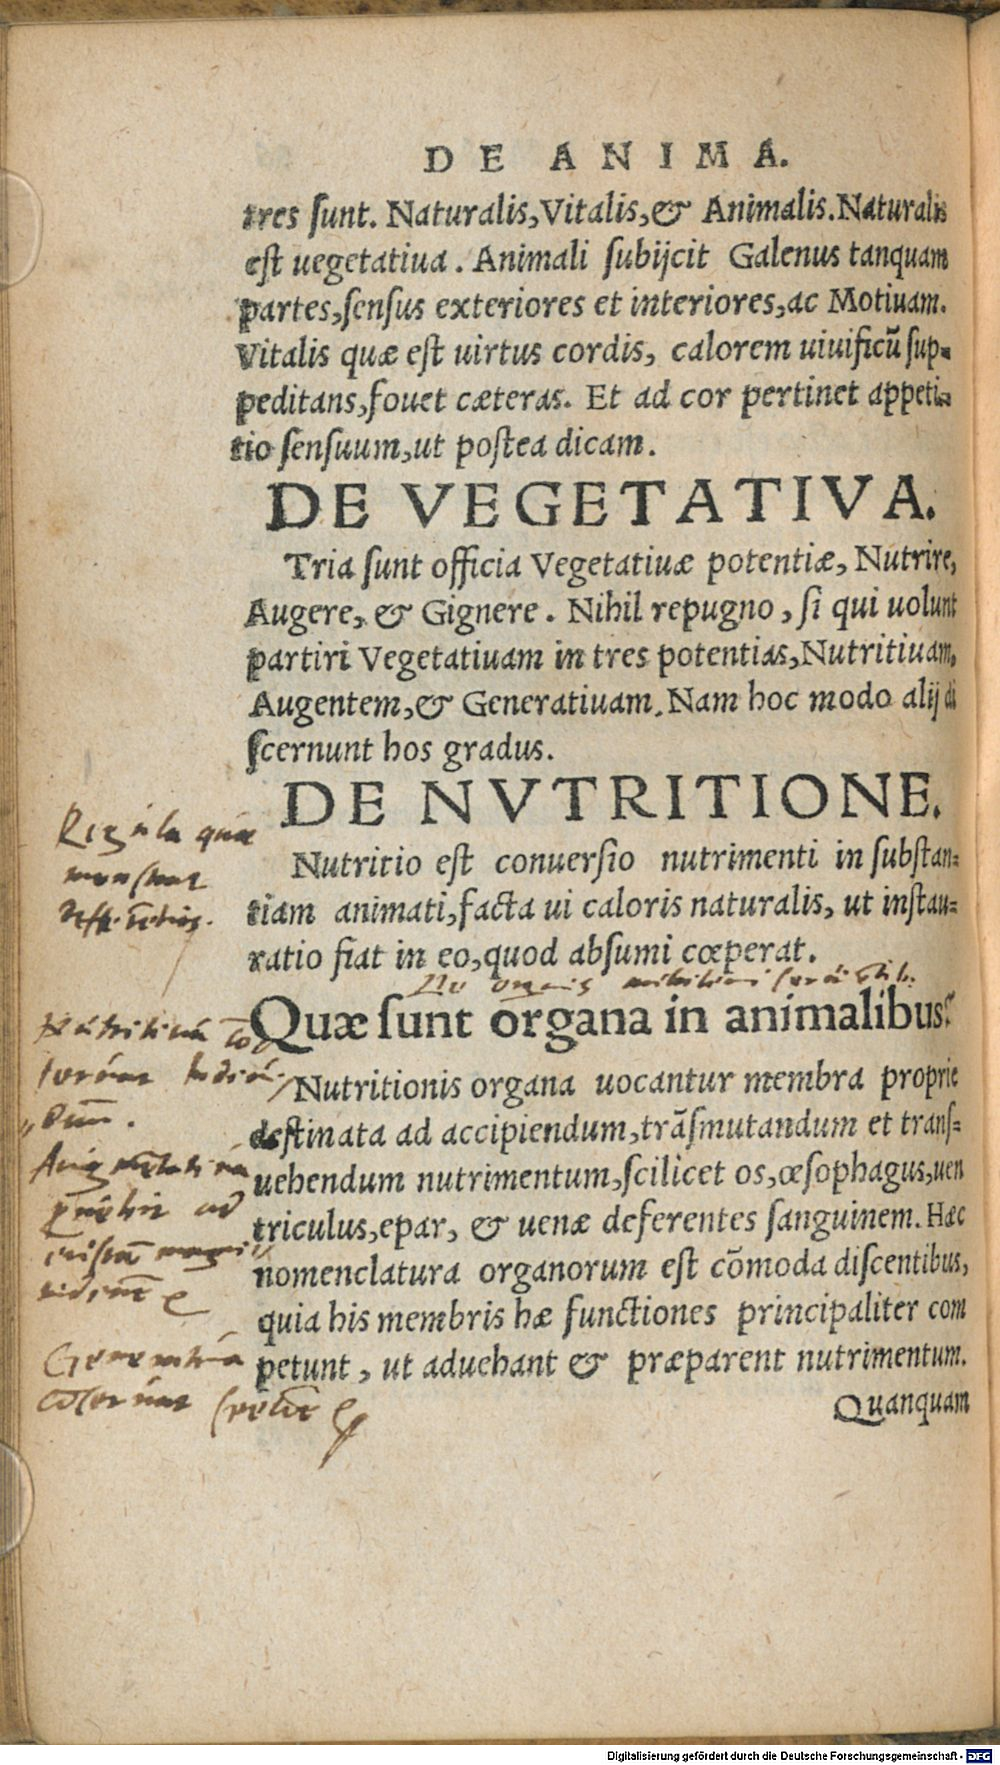 DE ANIMA.
tres sunt. Naturalis, Vitalis, & Animalis. Naturalis
est uegetatiua. Animali subijcit Galenus tanquam
partes, sensus exteriores et interiores, ac Motiuam.
Vitalis quæ est uirtus cordis, calorem uiuificũ sup-
peditans, fouet cæteras. Et ad cor pertinet appeti-
tio sensuum, ut postea dicam.
DE VEGETATIVA.
Tria sunt officia Vegetatiuæ potentiæ, Nutrire,
Augere, & Gignere. Nihil repugno, si qui uolunt
partiri Vegetatiuam in tres potentias, Nutritiuam,
Augentem, & Generatiuam. Nam hoc modo alij di
scernunt hos gradus.
DE NVTRITIONE.
Nutritio est conuersio nutrimenti in substan-
tiam animati, facta ui caloris naturalis, ut instau-
ratio fiat in eo, quod absumi cœperat.
Quæ sunt organa in animalibus?
Nutritionis organa uocantur membra proprie
destinata ad accipiendum, trãsmutandum et trans-
uehendum nutrimentum, scilicet os, œsophagus, uen
triculus, epar, & uenæ deferentes sanguinem. Hæc
nomenclatura organorum est cõmoda discentibus,
quia his membris hæ functiones principaliter com
petunt, ut aduehant & præparent nutrimentum.
Quanquam
Regula quæ
Generatiua
Digitalisierung gefördert durch die Deutsche Forschungsgemeinschaft - DFG